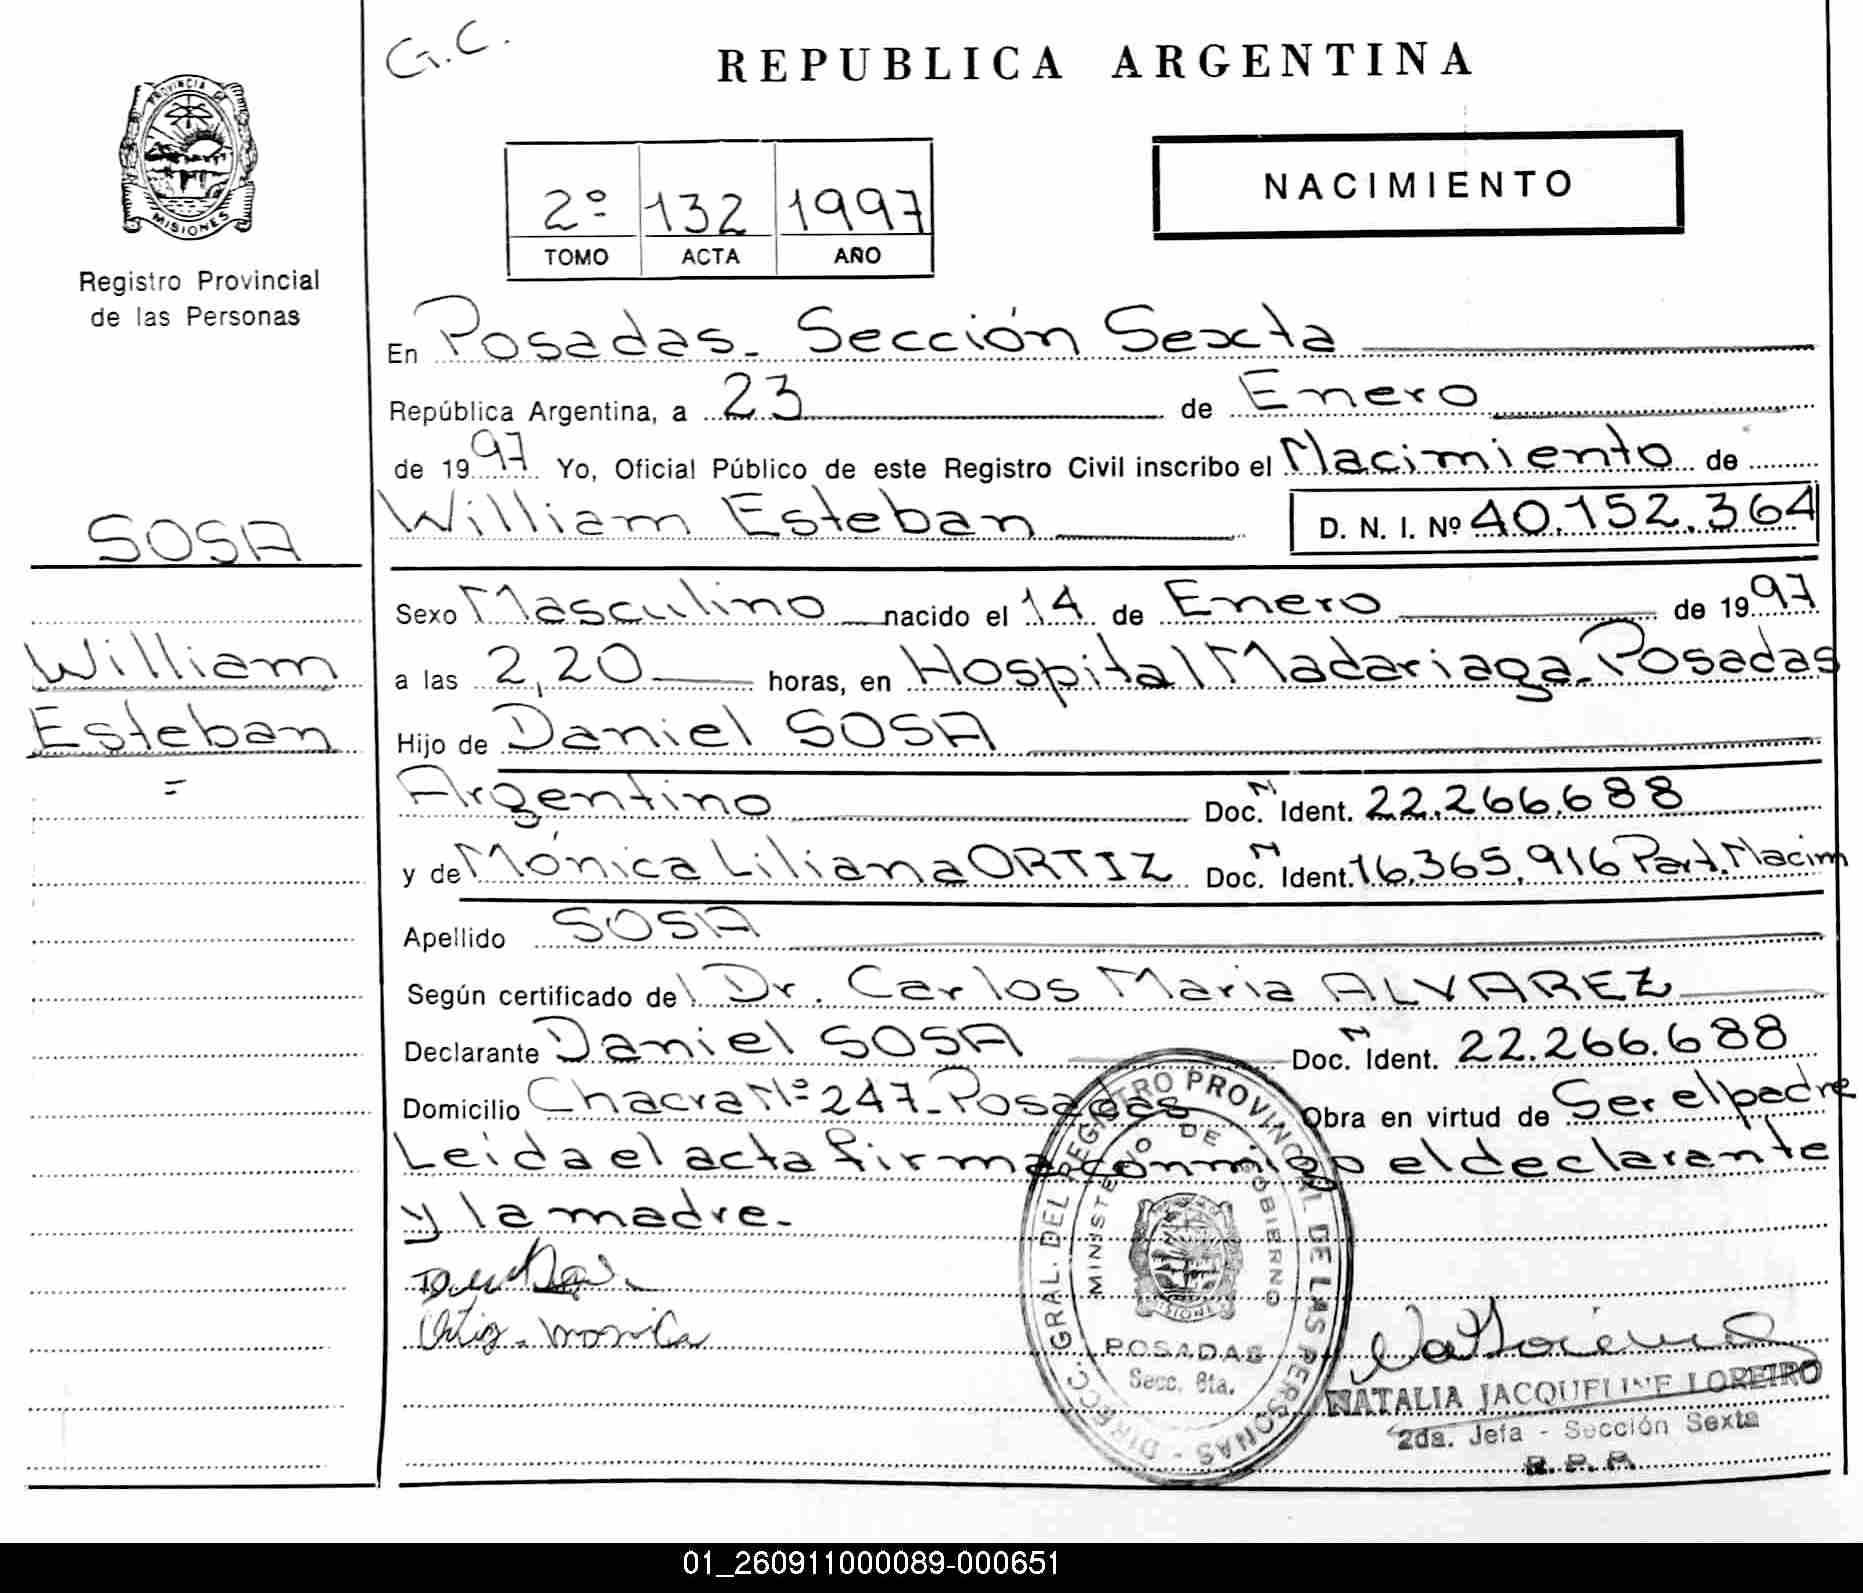 G.C.
REPUBLICA ARGENTINA
PROVINCIA DE
MISIONES
Registro Provincial
de las Personas
2º 132 1997
TOMO ACTA AÑO
NACIMIENTO
En Posadas - Sección Sexta
República Argentina, a 23 de Enero
de 1997 Yo, Oficial Público de este Registro Civil inscribo el Nacimiento de
William Esteban D. N. I. Nº 40.152.364
SOSA
William
Esteban
=
Sexo Masculino nacido el 14 de Enero de 1997
a las 2,20 horas, en Hospital Madariaga - Posadas
Hijo de Daniel SOSA
Argentino Doc. N Ident. 22.266.688
y de Mónica Liliana ORTIZ Doc. N Ident. 16.365.916 Part. Nacim
Apellido SOSA
Según certificado del Dr. Carlos Maria ALVAREZ
Declarante Daniel SOSA Doc. N Ident. 22.266.688
Domicilio Chacra Nº 247 - Posadas Obra en virtud de Ser el padre
Leida el acta firma conmigo el declarante
y la madre.-
Ortiz - Monica
DIRECC. GRAL. DEL REGISTRO PROVINCIAL DE LAS PERSONAS
MINISTERIO DE GOBIERNO
MISIONES
POSADAS
Secc. 6ta.
NATALIA JACQUELINE LOREIRO
2da. Jefa - Sección Sexta
R. P. P.
01_260911000089-000651